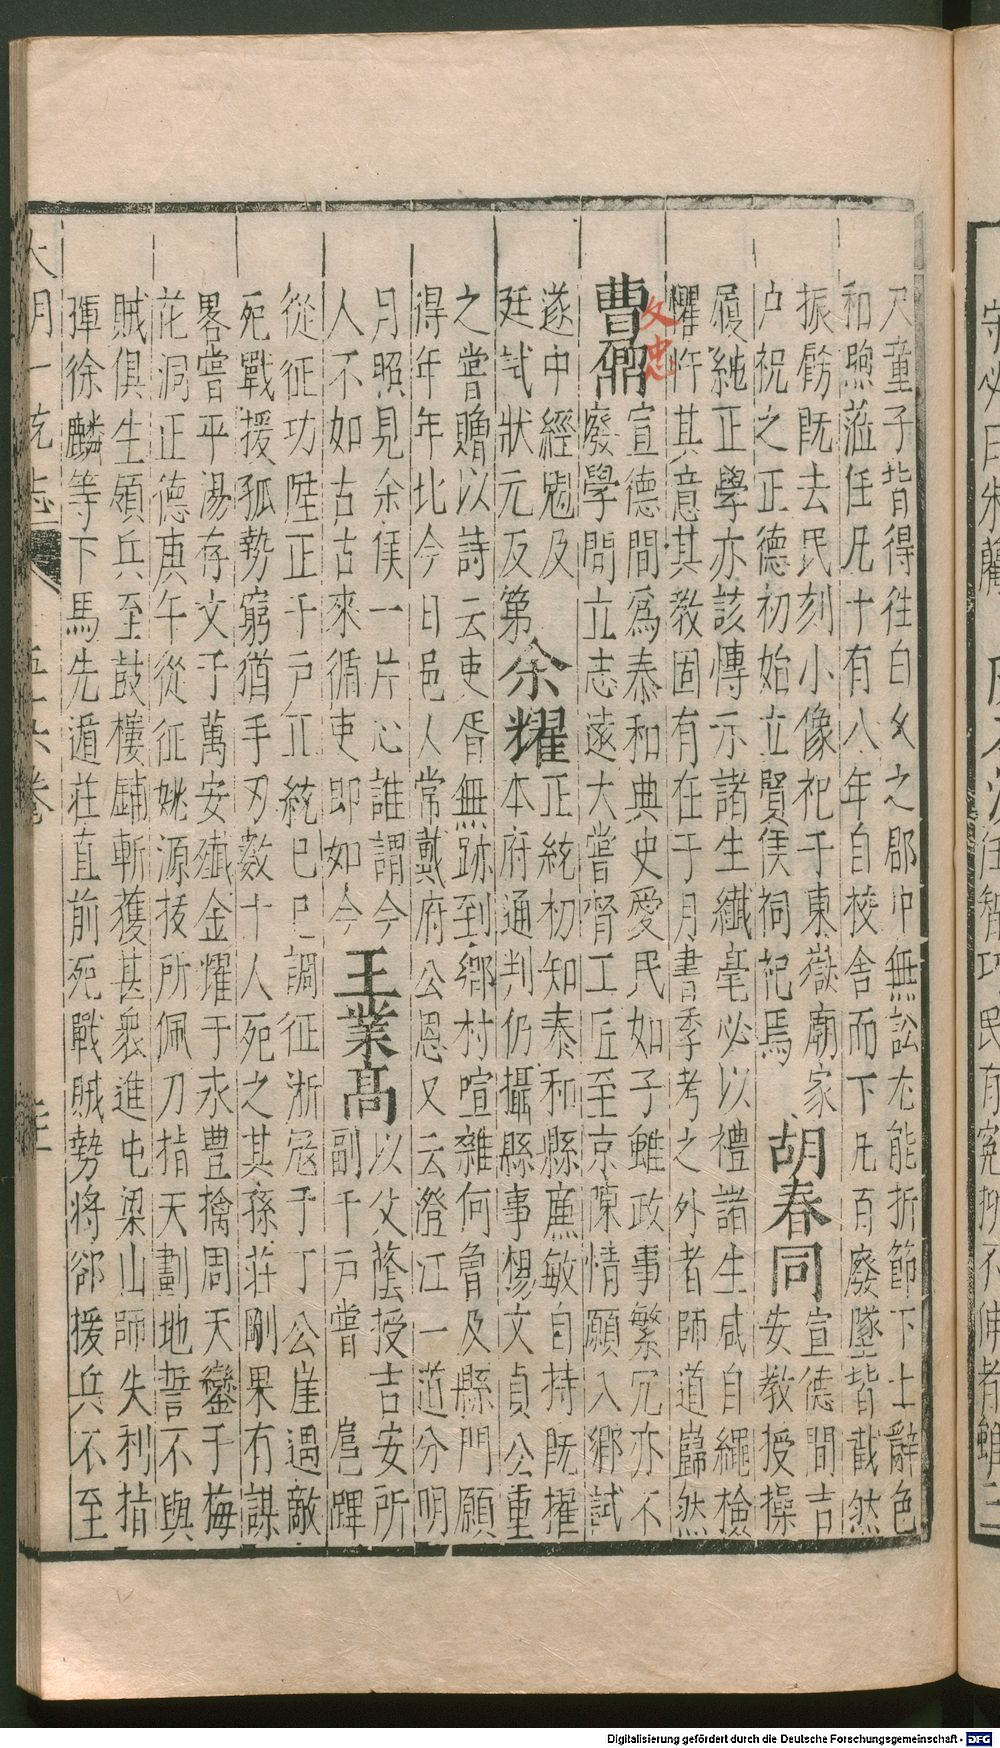 尺童子皆得徃白乆之郡中無訟尤能折節下士辭色
和煦蒞任凡十有八年自校舎而下凡百廢墜皆截然
振餝既去民刻小像祀于東嶽廟家
户祝之正德初始立賢侯祠祀焉
胡春同
宣德間吉
安教授操
履純正學亦該愽示諸生纎毫必以禮諸生咸自繩檢
懼忤其意其教固有在于月書季考之外者師道巋然
曹鼐
文忠
宣德間爲泰和典史愛民如子雖政事繁冗亦不
廢學問立志逺大嘗督工匠至京陳情願入郷試
遂中經魁及
廷試狀元及第
余耀
正統初知泰和縣廉敏自持既擢
本府通判仍攝縣事楊文貞公重
之嘗贈以詩云吏胥無跡到郷村喧雜何曾及縣門願
得年年比今日邑人常戴府公恩又云澄江一道分明
月照見余侯一片心誰謂今
人不如古古來循吏即如今
王業高
以父蔭授吉安所
副千户嘗扈蹕
從征功陞正千户正統己巳調征浙冦于丁公崖遇敵
死戰援孤勢窮猶手刃数十人死之其孫莊剛果有謀
畧嘗平湯存文于萬安殱金耀于永豊擒周天鑾于梅
花洞正德庚午從征姚源抜所佩刀指天劃地誓不與
賊俱生頃兵至鼓樓鋪斬獲甚衆進屯梁山師失利指
揮徐麟等下馬先遁莊直前死戰賊勢将郤援兵不至
大明一統志
卷